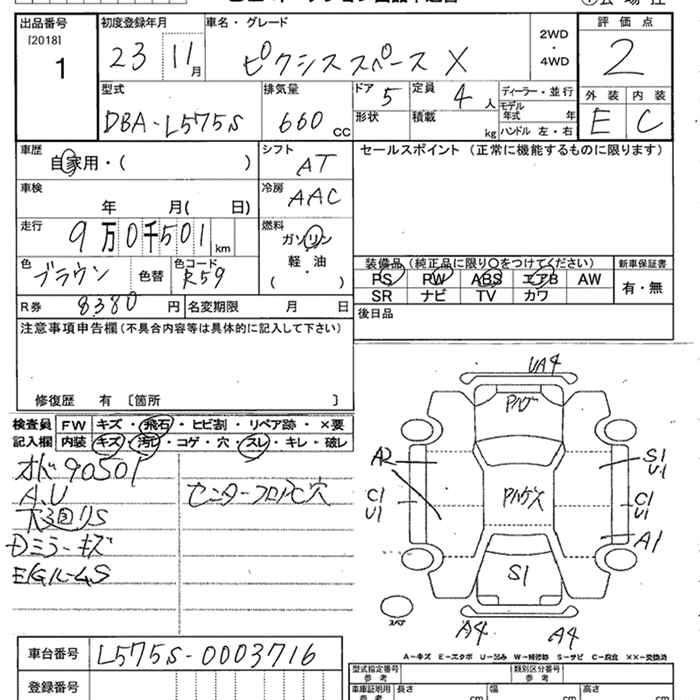 出品番号 初度登録年月 車名・グレード 2WD ・ 4WD 評価点
[2018] 1 23 11月 ピクシススペース X 2
型式 排気量 ドア 5 定員 4人 ディーラー・並行 外装 内装
DBA-L575S 660 CC 形状 積載 kg モデル年式 年 ハンドル 左・右 E C
車歴 自家用・( ) シフト AT セールスポイント (正常に機能するものに限ります)
車検 年 月( 日) 冷房 AAC
走行 9万0千501 km 燃料 ガソリン ・ 軽・油 ( )
色 ブラウン 色替 色コード R59
装備品 (純正品に限り○をつけてください) 新車保証書
PS PW ABS エアB AW 有・無
SR ナビ TV カワ
R券 8380 円 名変期限 月 日 後日品
注意事項申告欄(不具合内容等は具体的に記入して下さい)
修復歴 有 〔箇所 〕
検査員 FW キズ・飛石・ヒビ割・リペア跡・×要
記入欄 内装 キズ・汚れ・コゲ・穴・スレ・キレ・破レ
90501
A.U
Dミラーキズ
E/GルームS
UA4
A2
S1
U1
C1
U1
C1
U1
A1
S1
スペア
A4 A4
A-キズ E-エクボ U-凹み W-補修跡 S-サビ C-腐食 ××-交換済
車台番号 L575S-0003716
登録番号
型式指定番号 参考 類別区分番号 参考
車庫証明用 参考 長さ cm 幅 cm 高さ cm